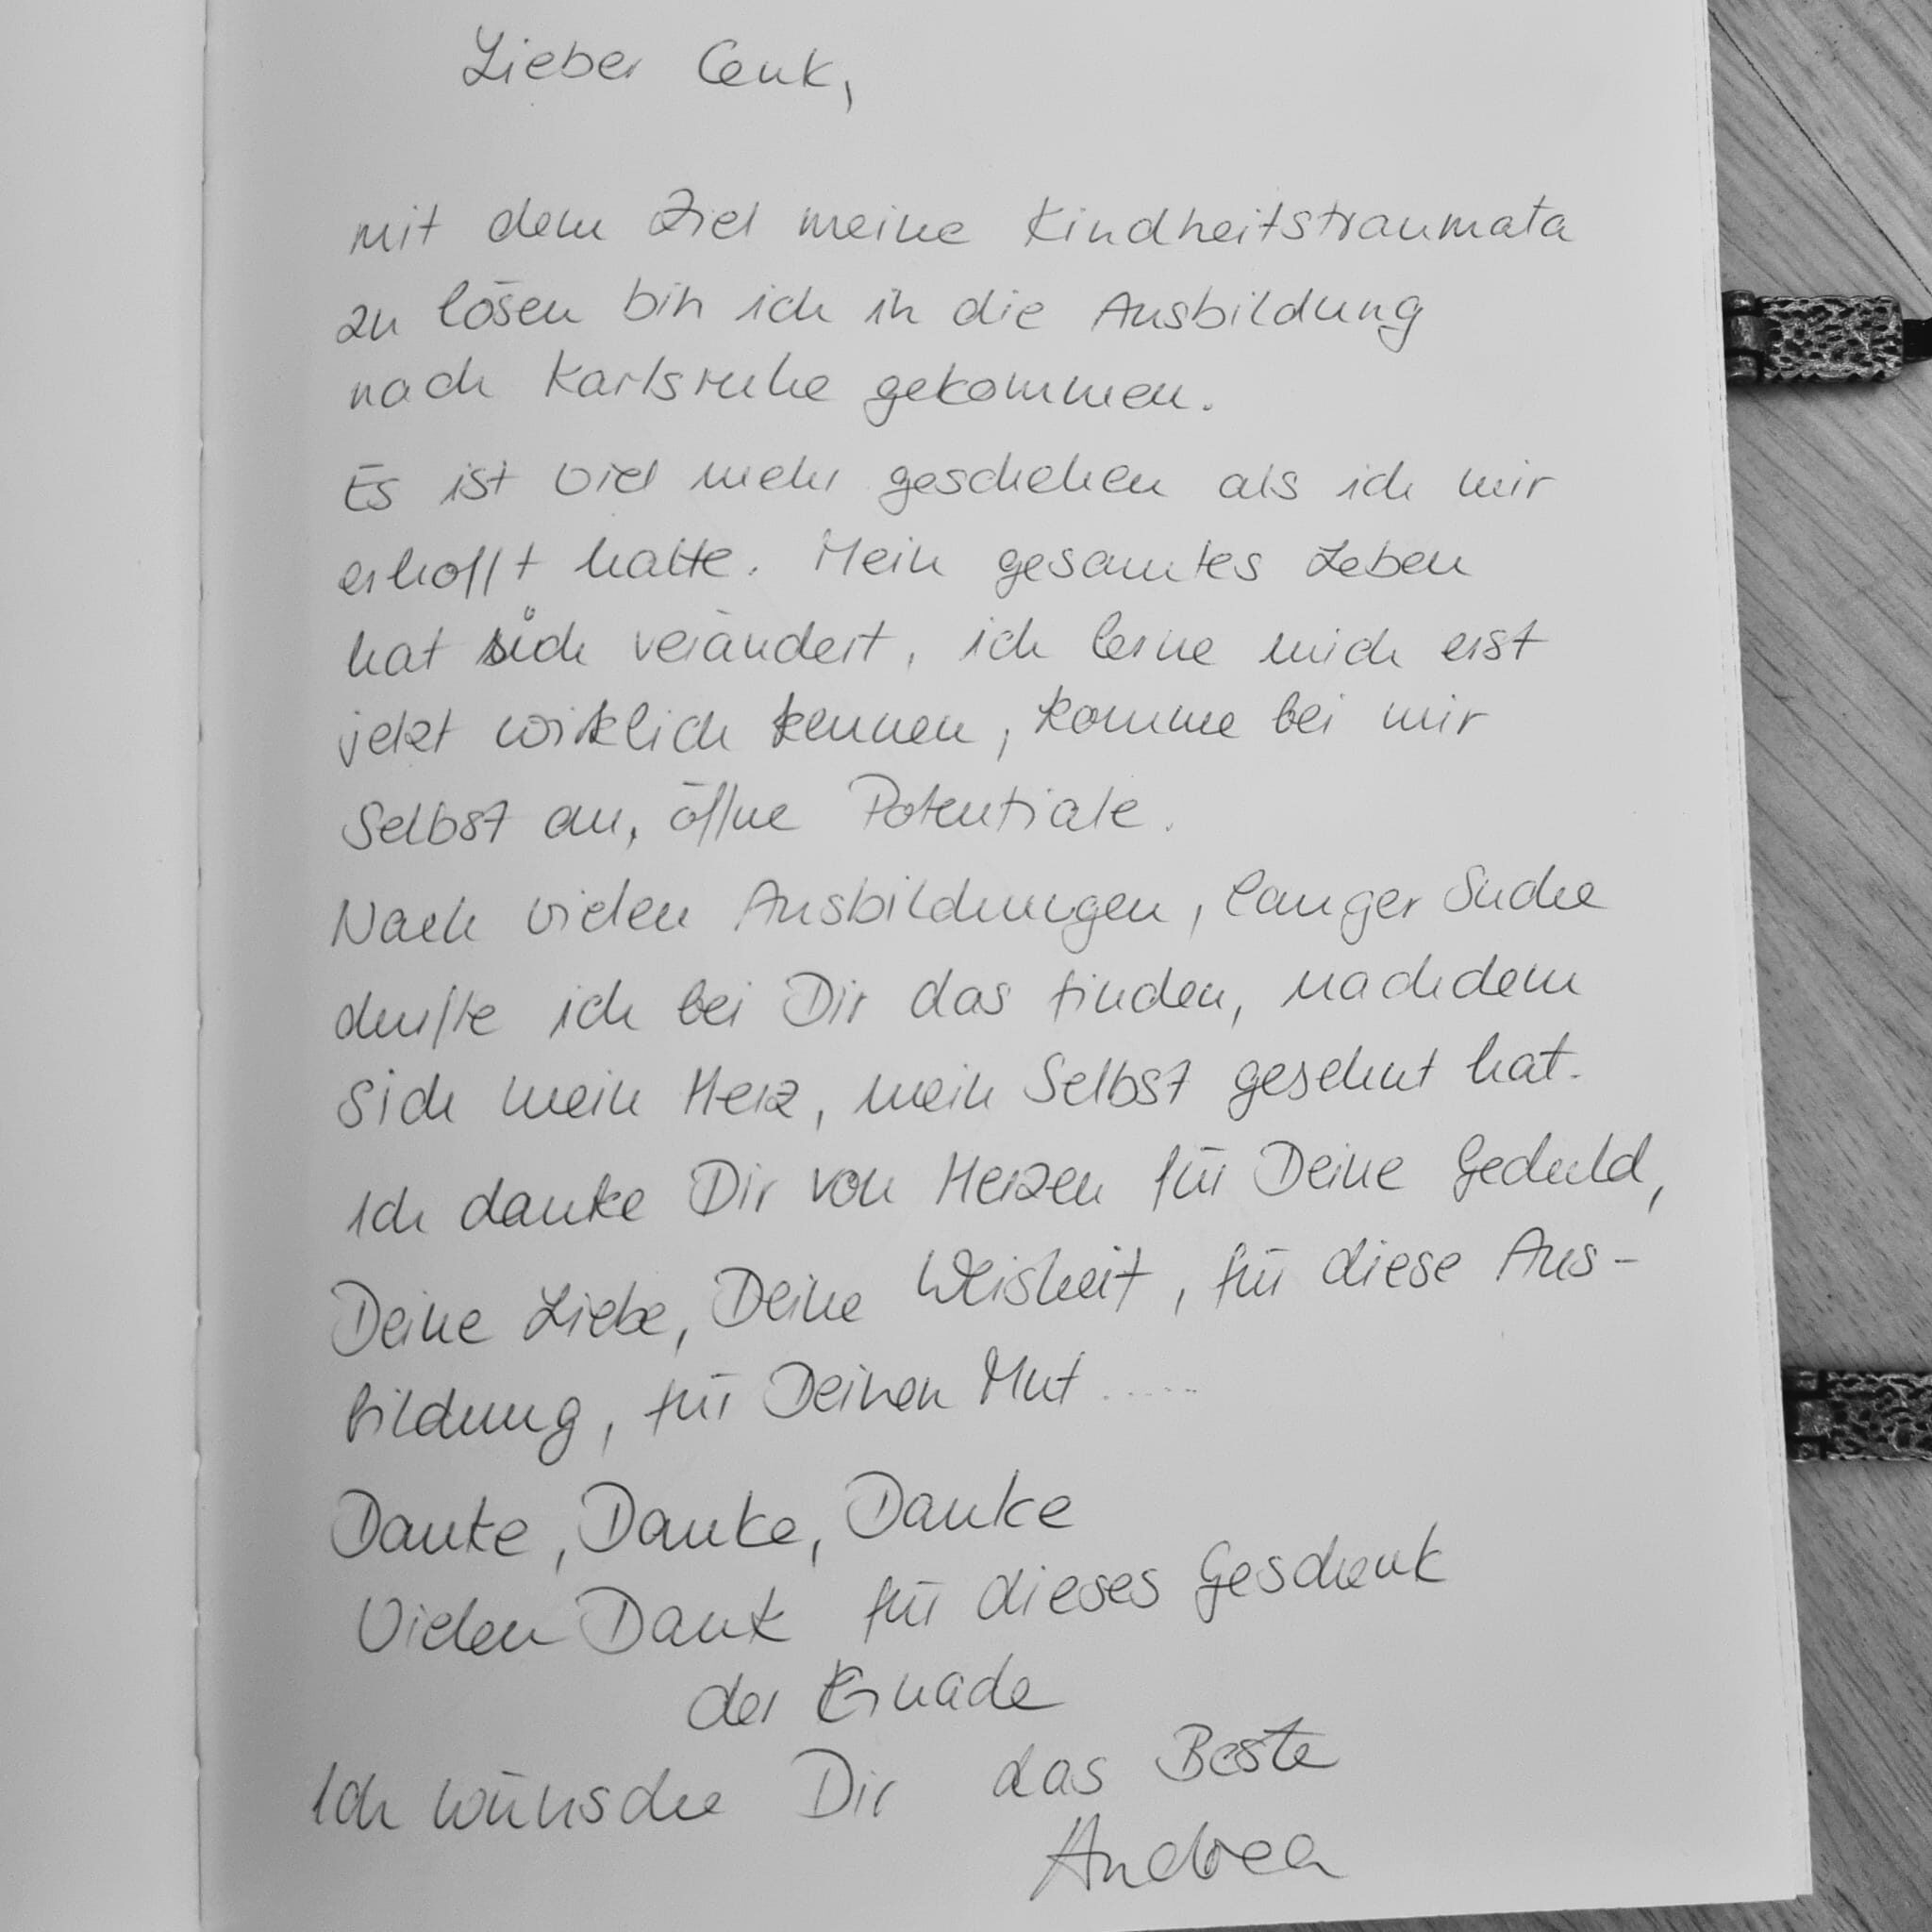 Lieber Cenk,
mit dem Ziel meine Kindheitstraumata
zu lösen bin ich in die Ausbildung
nach Karlsruhe gekommen.
Es ist viel mehr geschehen als ich mir
erhofft hatte. Mein gesamtes Leben
hat sich verändert, ich lerne mich erst
jetzt wirklich kennen, komme bei mir
Selbst an, öffne Potentiale.
Nach vielen Ausbildungen, langer Suche
durfte ich bei Dir das finden, nachdem
sich mein Herz, mein Selbst gesehnt hat.
Ich danke Dir von Herzen für Deine Geduld,
Deine Liebe, Deine Weisheit, für diese Aus-
bildung, für Deinen Mut ......
Danke, Danke, Danke
Vielen Dank für dieses Geschenk
der Gnade
Ich wünsche Dir das Beste
Andrea